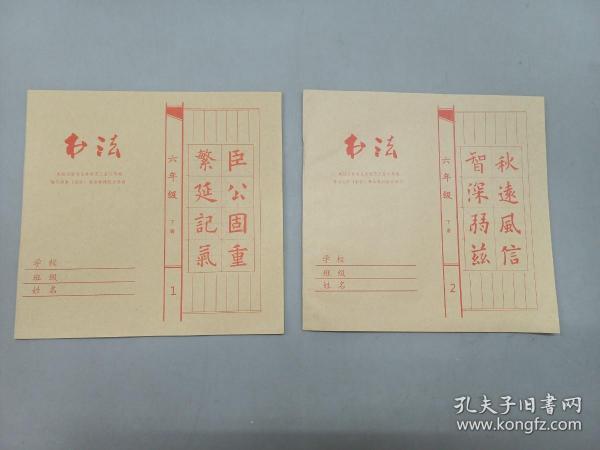 书法
六年级
下册
1
臣公固重
繁延記氣
学校
班级
姓名
书法
六年级
下册
2
秋遠風信
智深弱兹
学校
班级
姓名
孔夫子旧书网
www.kongfz.com